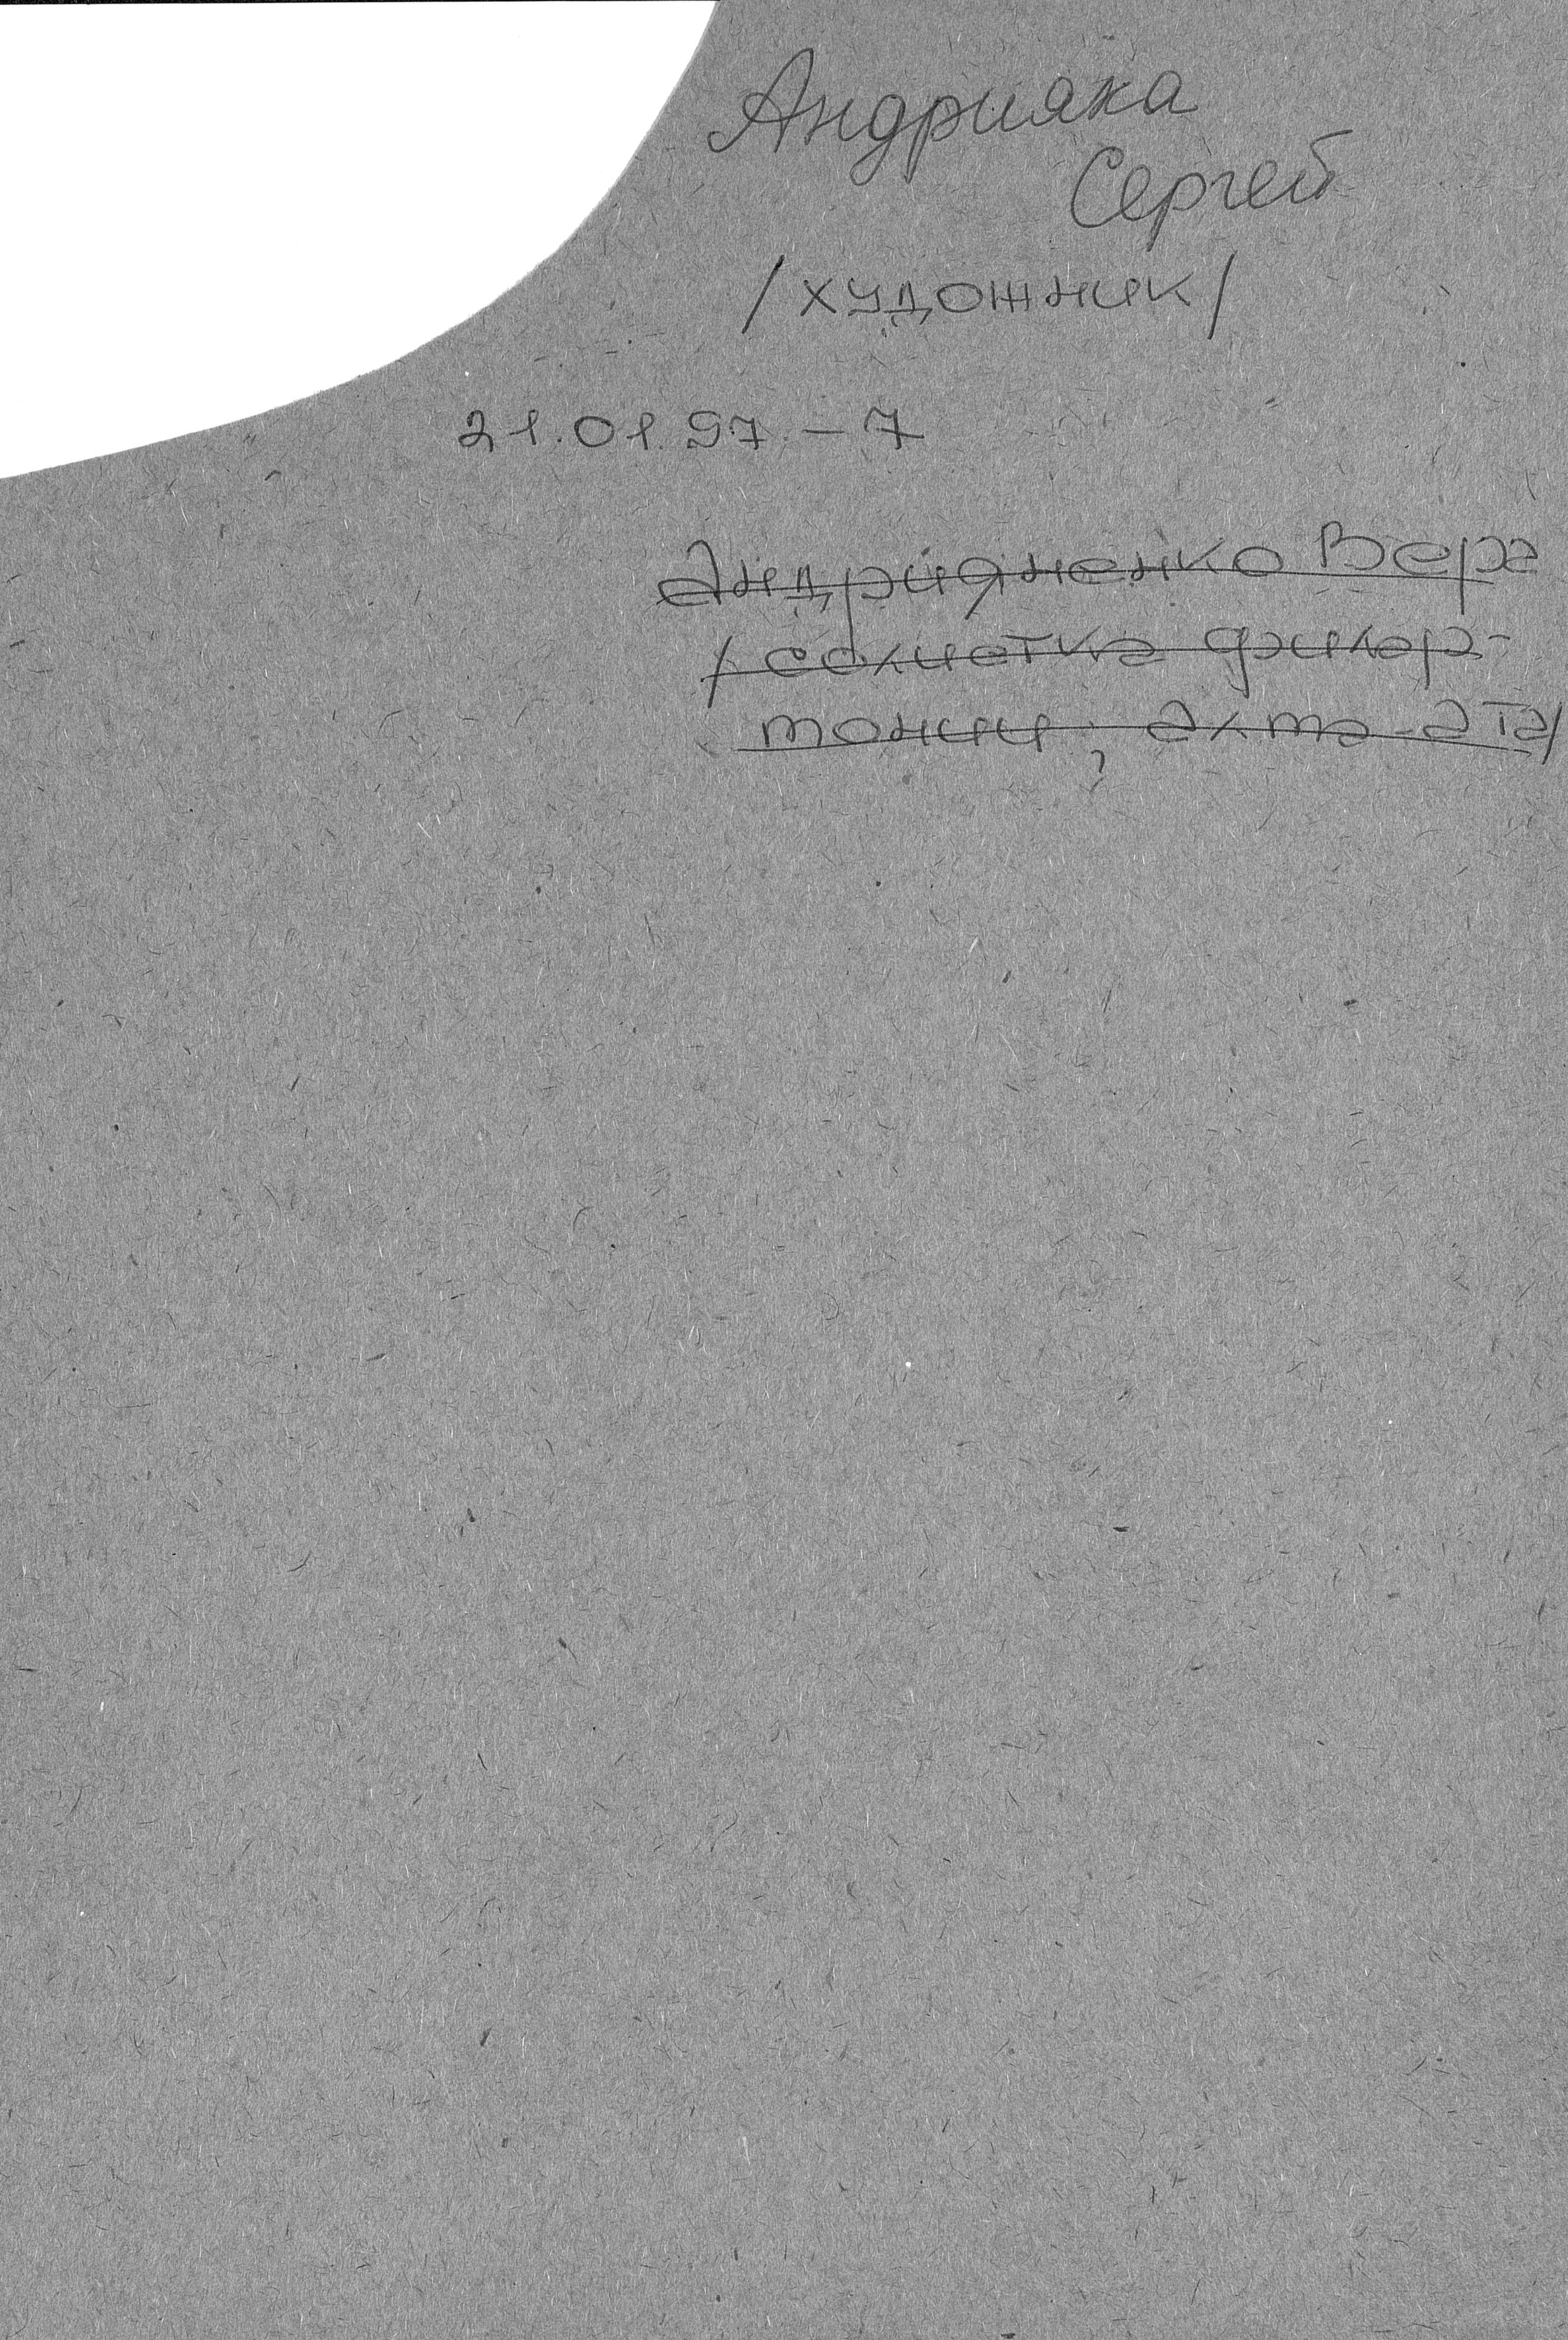 Андрияка
Сергей
/художник/
21.01.97 – 7
Андрияненко Вера
/солистка филар-
монии, Алма-Ата/